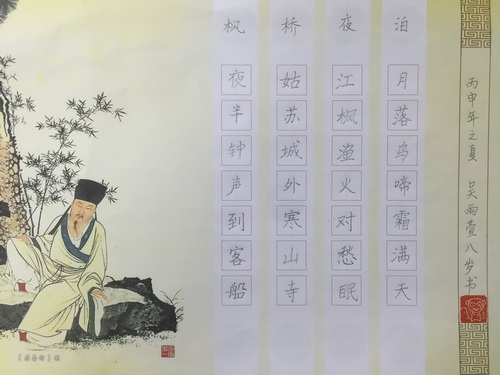 枫桥夜泊
月落乌啼霜满天
江枫渔火对愁眠
姑苏城外寒山寺
夜半钟声到客船
丙申年之夏 吴雨萱八岁书